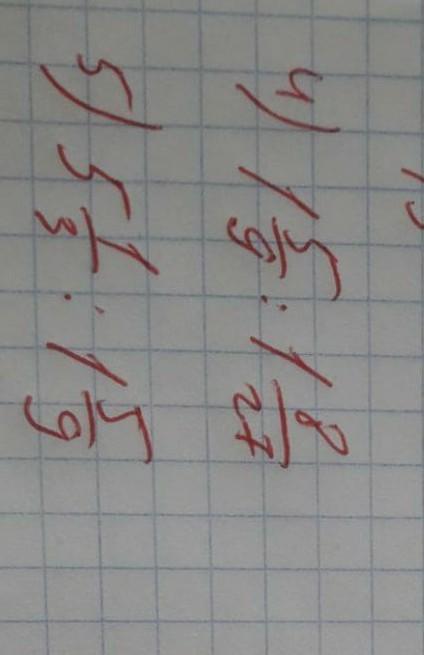 4) 1 5/9 : 1 8/27
5) 5 1/3 : 1 5/9